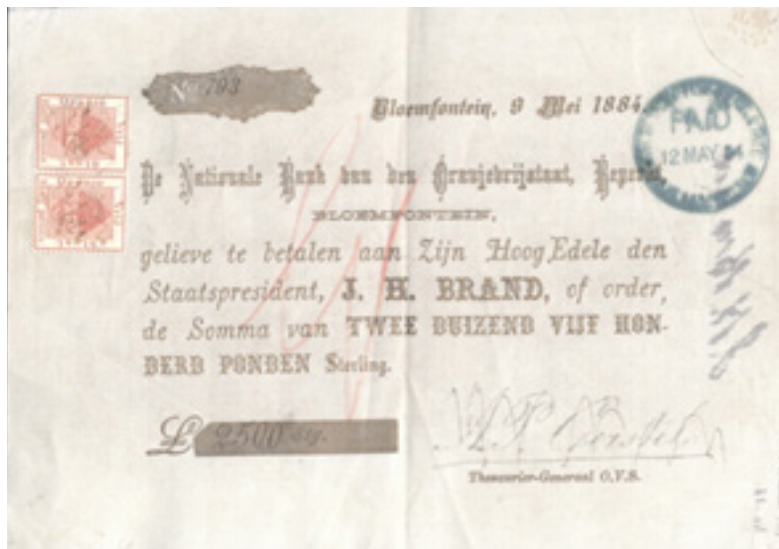 No. 793
Bloemfontein, 9 Mei 1884.
PAID
12 MAY 84
De Nationale Bank van den Oranjevrijstaat, Beperkt,
BLOEMFONTEIN,
gelieve te betalen aan Zijn HoogEdele den
Staatspresident, J. H. BRAND, of order,
de Somma van TWEE DUIZEND VIJF HON-
DERD PONDEN Sterling.
£ 2500 stg.
Thesaurier-Generaal O.V.S.